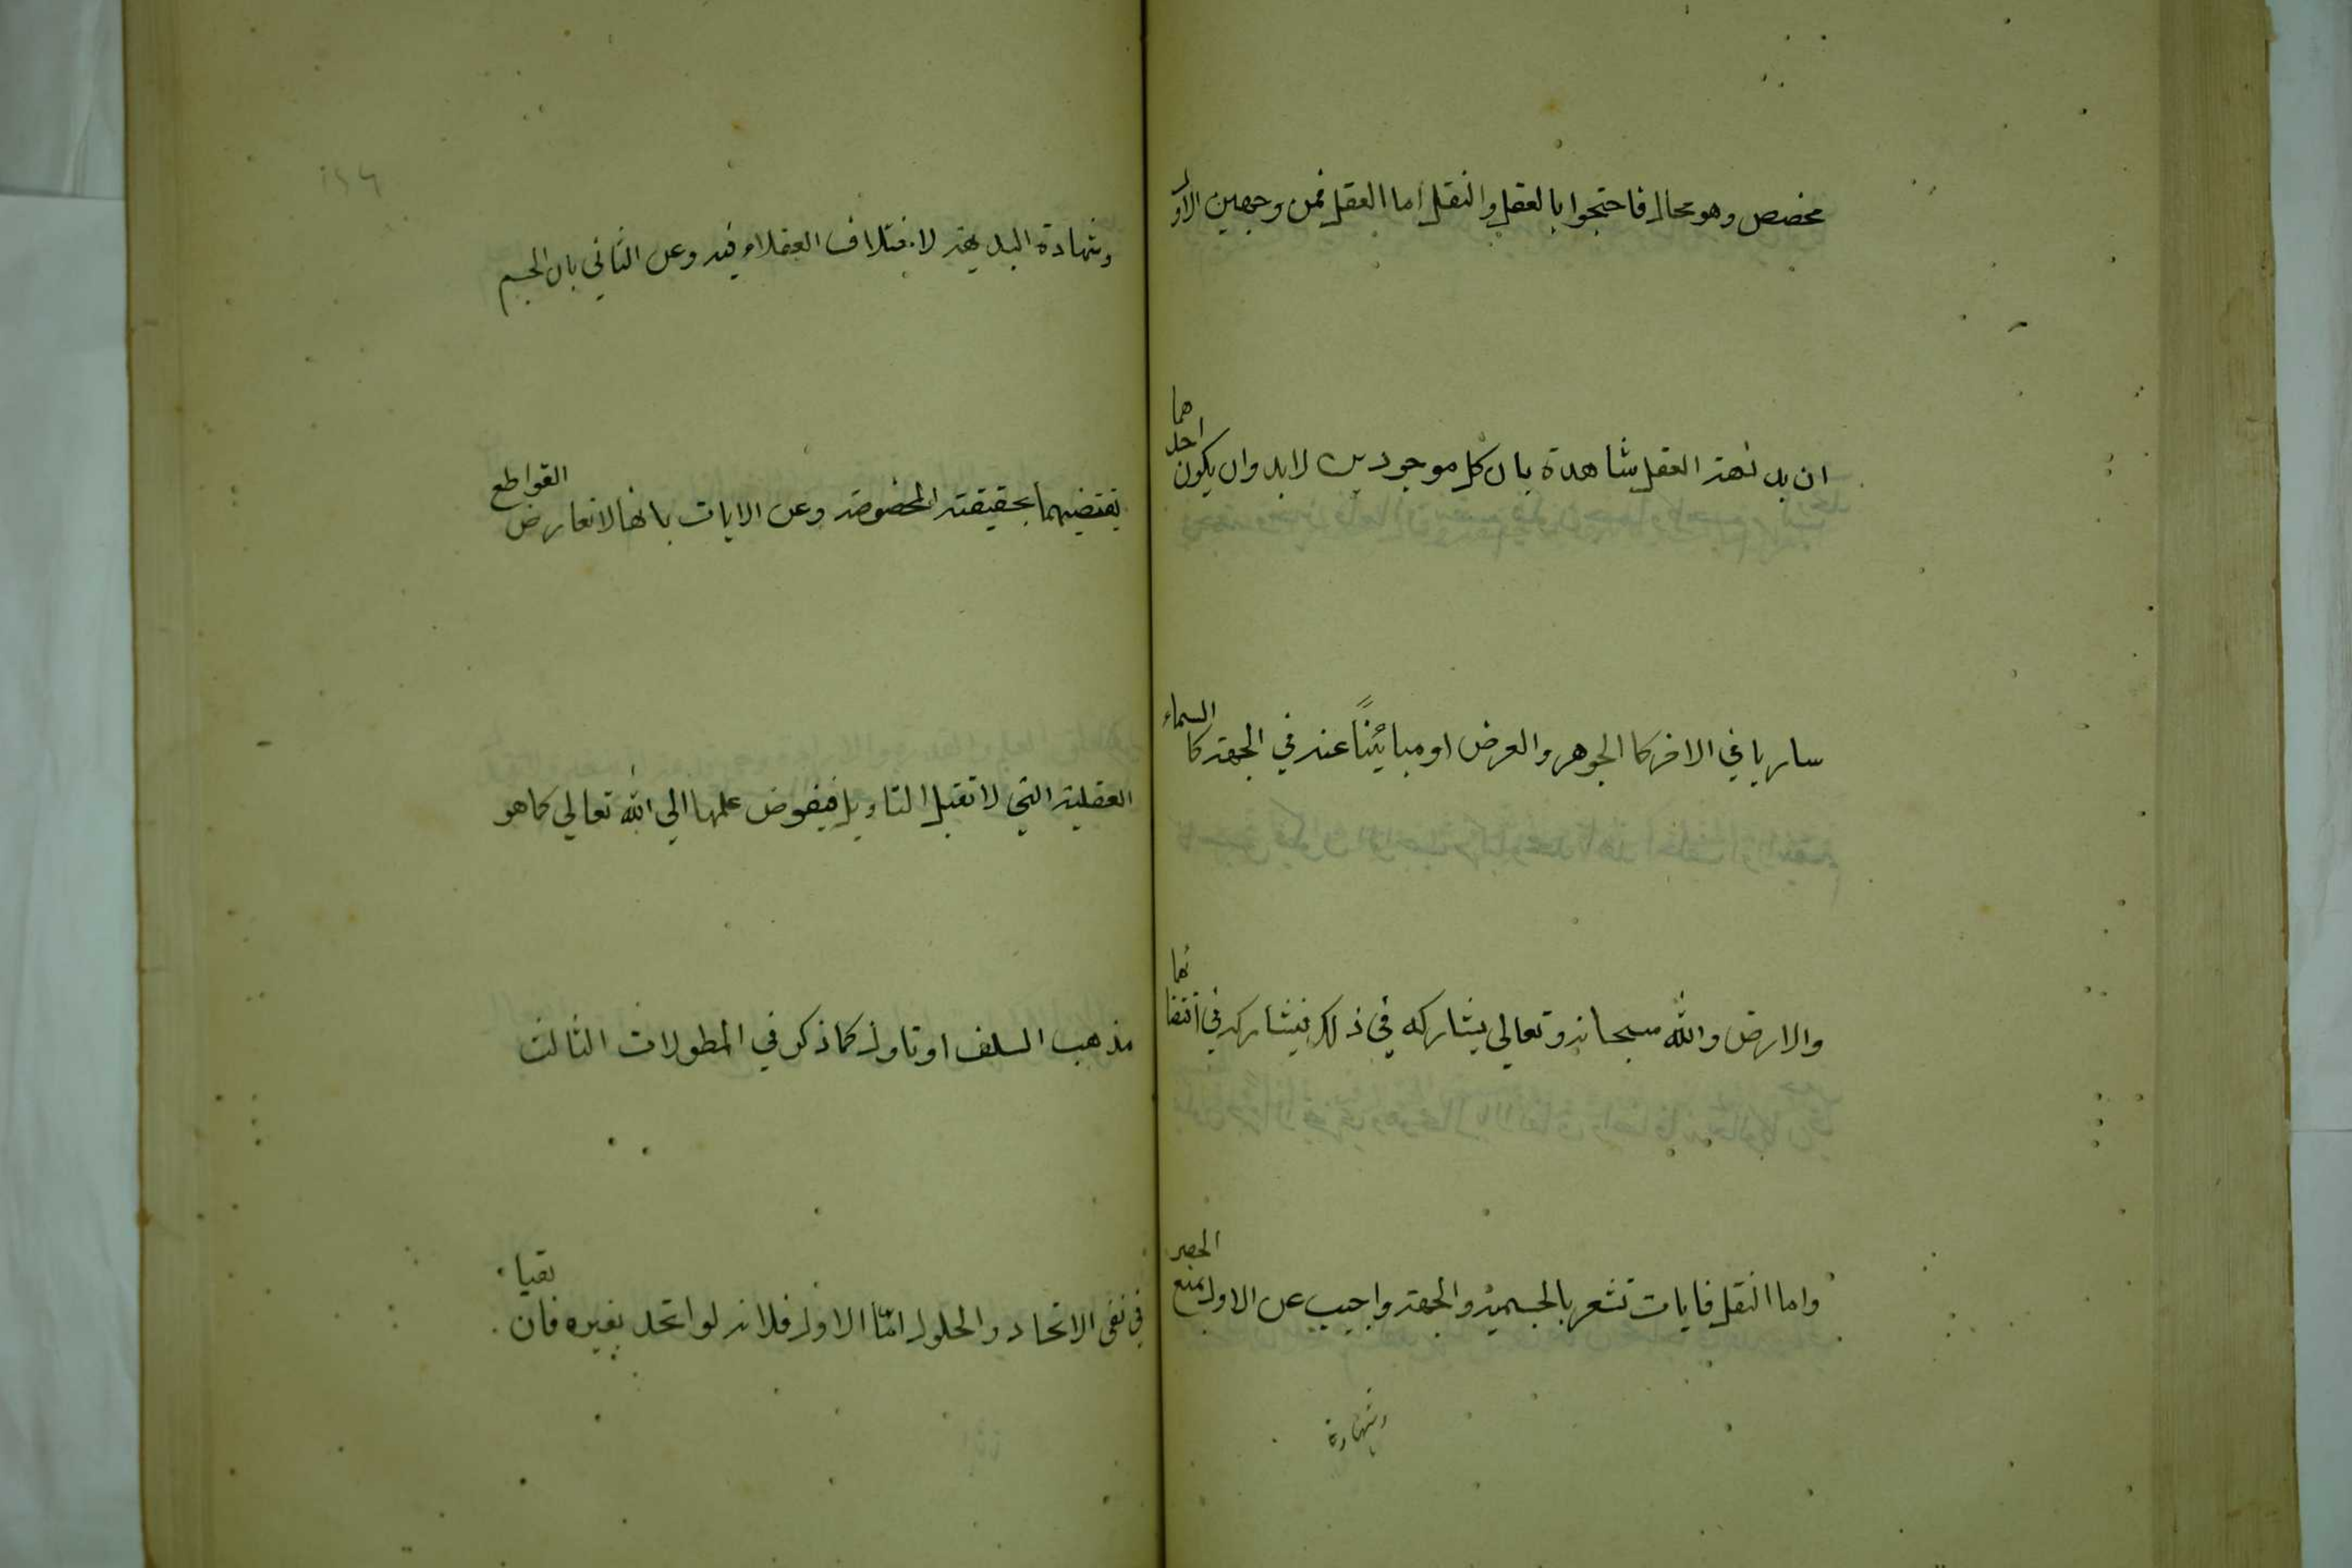 مخصص وهو محال فاحتجوا بالعقل والنقل اما العقل فمن وجهين الاول
ان بديهة العقل شاهدة بان كل موجودين لابد وان يكون احدهما
ساريا في الاخر كالجوهر والعرض او مبائنًا عنه في الجهة كالسماء
والارض والله سبحانه وتعالى يشاركه في ذلك فيشاركه في اقتضائهما
واما النقل فايات تشعر بالجسمية والجهة واجيب عن الاول بمنع الحصر
وشهادة
وشهادة البديهة لاختلاف العقلاء فيه وعن الثاني بان الجسم
يقتضيهما بحقيقته المخصوصة وعن الايات بانها لا تعارض القواطع
العقلية التي لا تقبل التاويل فيفوض علمها الي الله تعالي كما هو
مذهب السلف او تاول كما ذكر في المطولات الثالث
في نفي الاتحاد والحلول امّا الاول فلانه لو اتحد بغيره فان بقيا